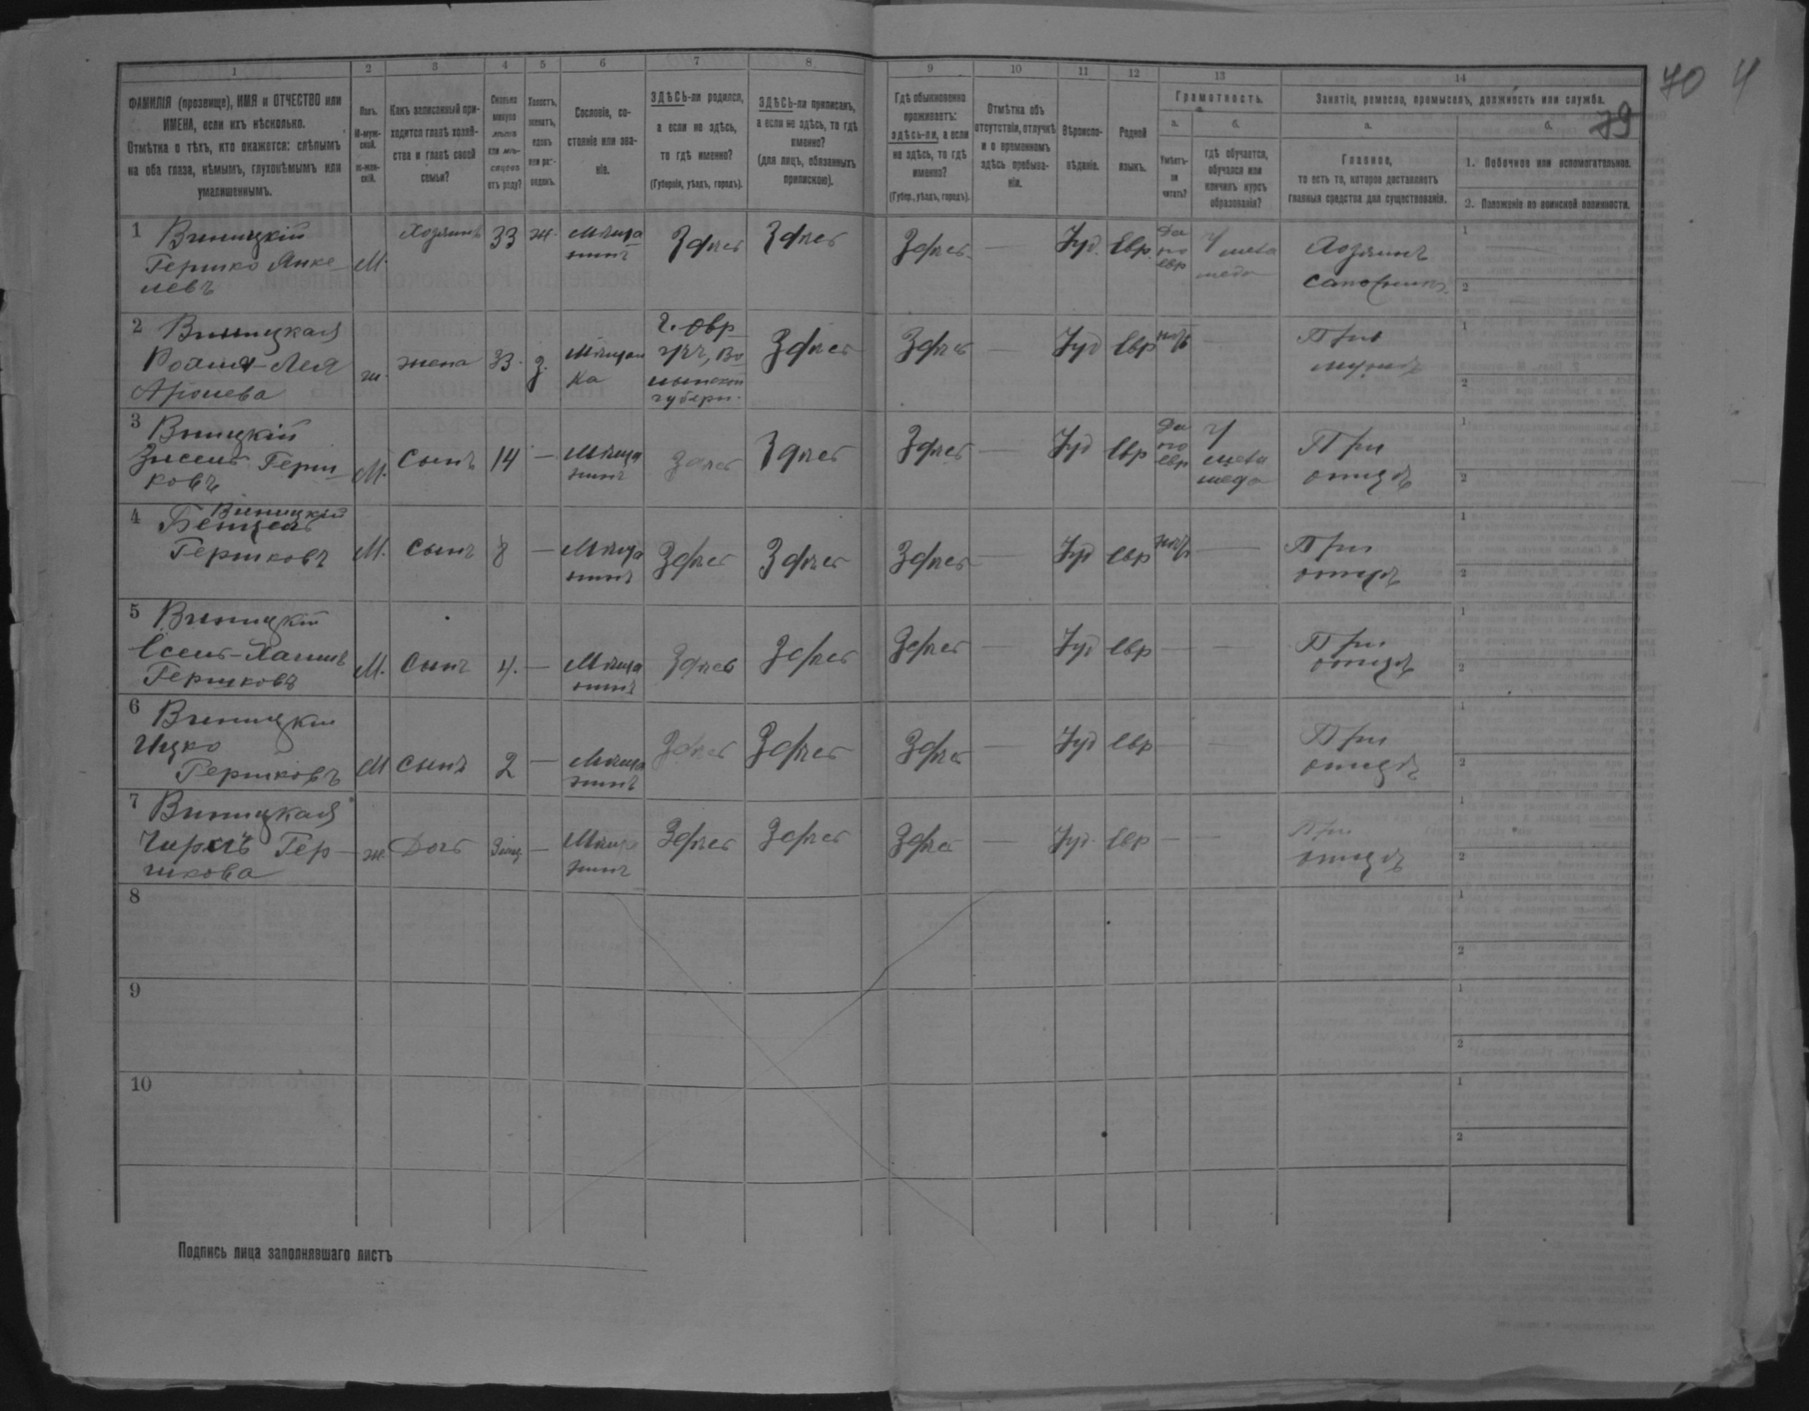 70 4
79
1 2 3 4 5 6 7 8 9 10 11 12 13 14
ФАМИЛІЯ (прозвище), ИМЯ и ОТЧЕСТВО или
ИМЕНА, если ихъ нѣсколько.
Отмѣтка о тѣхъ, кто окажется: слѣпымъ
на оба глаза, нѣмымъ, глухонѣмымъ или
умалишеннымъ.
Полъ.
М-муж-
ской.
ж-жен-
скій.
Какъ записанный при-
ходится главѣ хозяй-
ства и главѣ своей
семьи?
Сколько
минуло
лѣтъ
или мѣ-
сяцевъ
отъ роду?
Холостъ,
женатъ,
вдовъ
или ра-
зведенъ.
Сословіе, со-
стояніе или зва-
ніе.
ЗДѢСЬ-ли родился,
а если не здѣсь,
то гдѣ именно?
(Губернія, уѣздъ, городъ).
ЗДѢСЬ-ли приписанъ,
а если не здѣсь, то гдѣ
именно?
(для лицъ, обязанныхъ
припискою).
Гдѣ обыкновенно
проживаетъ:
здѣсь-ли, а если
не здѣсь, то гдѣ
именно?
(Губер., уѣздъ, городъ).
Отмѣтка объ
отсутствіи, отлучкѣ
и о временномъ
здѣсь пребыва-
ніи.
Вѣроиспо-
вѣданіе.
Родной
языкъ.
Грамотность.
а. б.
Умѣетъ-
ли
читать?
гдѣ обучается,
обучался или
кончилъ курсъ
образованія?
Занятіе, ремесло, промыселъ, должность или служба.
а. б.
Главное,
то есть то, которое доставляетъ
главныя средства для существованія.
1. Побочное или вспомогательное.
2. Положеніе по воинской повинности.
1 Виницкій
Гершко Янке-
левъ
М. Хозяинъ 33 ж. Мѣща
нинъ Здѣсь Здѣсь Здѣсь — Іуд. Евр. да
по
евр У
Хозяинъ
1
2
2 Виницкая
Лея
Аронева
ж. жена 33. з. Мѣщан
ка г. Овр
Во
лынской
губерн. Здѣсь Здѣсь — Іуд Евр нѣтъ — При
мужѣ
1
2
3 Виницкій
Герш-
ковъ
М. Сынъ 14 — Мѣща
нинъ Здѣсь Здѣсь Здѣсь — Іуд Евр да
по
евр У
При
отцѣ
1
2
4 Виницкій
Гершковъ
М. Сынъ 8 — Мѣща
нинъ Здѣсь Здѣсь Здѣсь — Іуд евр нѣтъ — При
отцѣ
1
2
5 Виницкій
Гершковъ
М. Сынъ 4. — Мѣща
нинъ Здѣсь Здѣсь Здѣсь — Іуд евр — — При
отцѣ
1
2
6 Виницкій
Ицко
Гершковъ
М Сынъ 2 — Мѣща
нинъ Здѣсь Здѣсь Здѣсь — Іуд евр — — При
отцѣ
1
2
7 Виницкая
Гер-
шкова
ж. Дочь — Мѣща
нинъ Здѣсь Здѣсь Здѣсь — Іуд. Евр — — При
отцѣ
1
2
8
1
2
9
1
2
10
1
2
Подпись лица заполнявшаго листъ